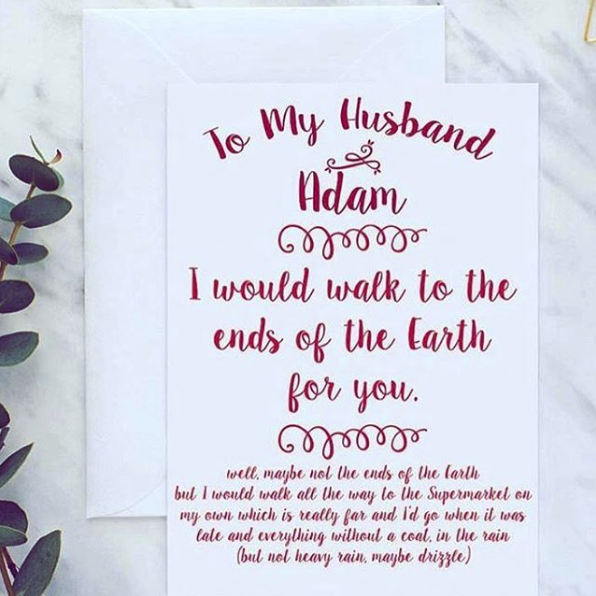 To My Husband
Adam
I would walk to the
ends of the Earth
for you.
well, maybe not the ends of the Earth
but I would walk all the way to the Supermarket on
my own which is really far and I'd go when it was
late and everything without a coat, in the rain
(but not heavy rain, maybe drizzle)